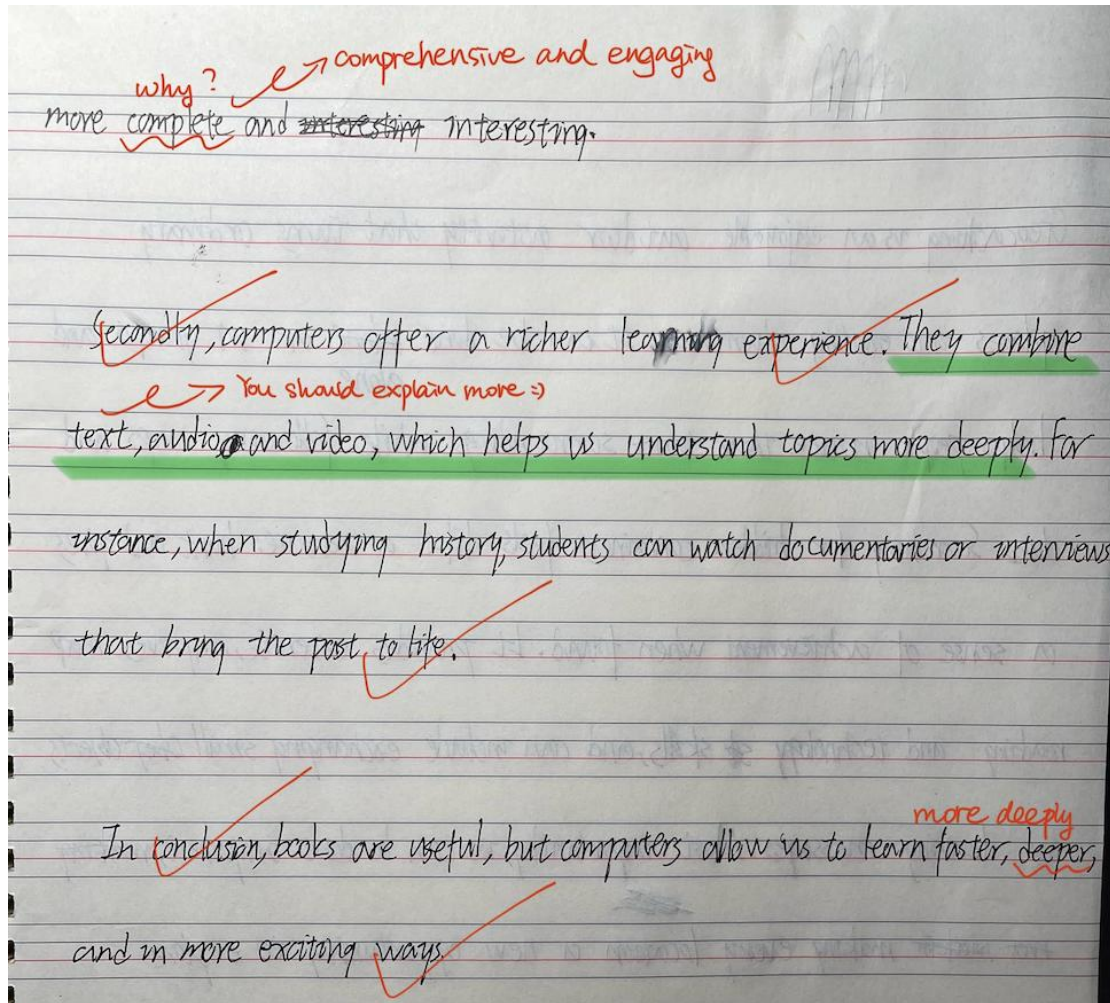 why? comprehensive and engaging
more complete and interesting interesting.
Secondly, computers offer a richer learning experience. They combine
You should explain more :)
text, audio and video, which helps us understand topics more deeply. For
instance, when studying history, students can watch documentaries or interviews
that bring the past to life.
more deeply
In conclusion, books are useful, but computers allow us to learn faster, deeper,
and in more exciting ways.